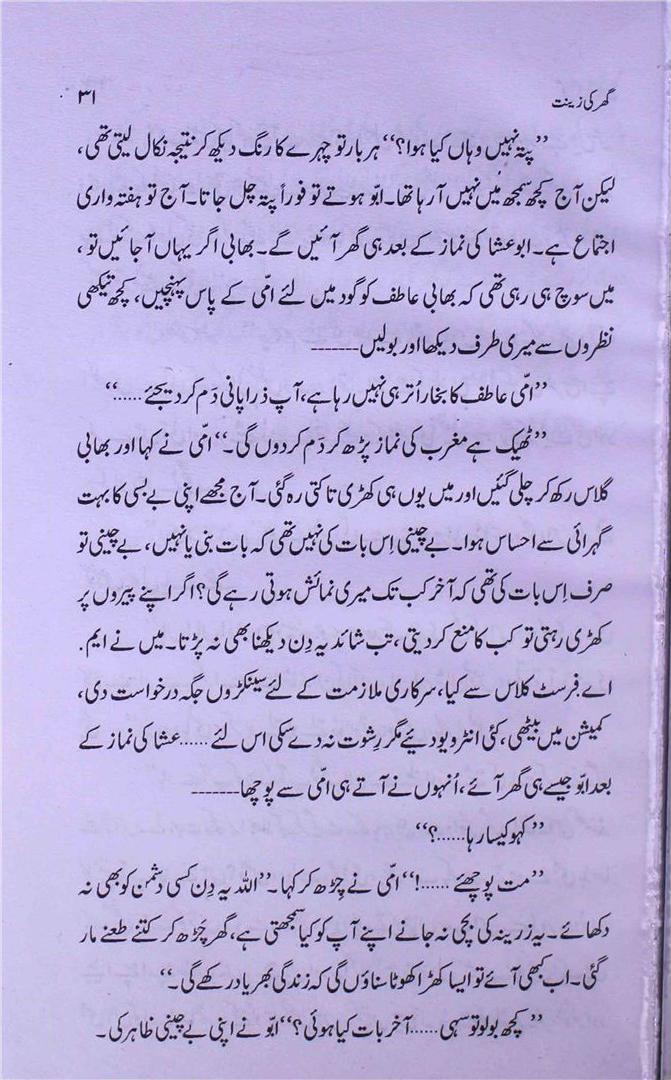 گھر کی زینت ۳۱
”پتہ نہیں وہاں کیا ہوا؟“ ہر بار تو چہرے کا رنگ دیکھ کر نتیجہ نکال لیتی تھی،
لیکن آج کچھ سمجھ میں نہیں آرہا تھا۔ ابّو ہوتے تو فوراً پتہ چل جاتا۔ آج تو ہفتہ واری
اجتماع ہے۔ ابو عشا کی نماز کے بعد ہی گھر آئیں گے۔ بھابی اگر یہاں آجائیں تو،
میں سوچ ہی رہی تھی کہ بھابی عاطف کو گود میں لئے امّی کے پاس پہنچیں، کچھ تیکھی
نظروں سے میری طرف دیکھا اور بولیں-------
”امّی عاطف کا بخار اُتر ہی نہیں رہا ہے، آپ ذرا پانی دَم کردیجئے......“
”ٹھیک ہے مغرب کی نماز پڑھ کر دَم کردوں گی۔“ امّی نے کہا اور بھابی
گلاس رکھ کر چلی گئیں اور میں یوں ہی کھڑی تاکتی رہ گئی۔ آج مجھے اپنی بے بسی کا بہت
گہرائی سے احساس ہوا۔ بے چینی اِس بات کی نہیں تھی کہ بات بنی یا نہیں، بے چینی تو
صرف اِس بات کی تھی کہ آخر کب تک میری نمائش ہوتی رہے گی؟ اگر اپنے پیروں پر
کھڑی رہتی تو کب کا منع کردیتی، تب شائد یہ دِن دیکھنا بھی نہ پڑتا۔ میں نے ایم.
اے فرسٹ کلاس سے کیا، سرکاری ملازمت کے لئے سینکڑوں جگہ درخواست دی،
کمیشن میں بیٹھی، کئی انٹرویو دیئے مگر رِشوت نہ دے سکی اس لئے ...... عشا کی نماز کے
بعد ابّو جیسے ہی گھر آئے، اُنہوں نے آتے ہی امّی سے پوچھا-------
”کہو کیسا رہا......؟“
”مت پوچھئے ......!“ امّی نے چِڑھ کر کہا۔ ”اللہ یہ دِن کسی دشمن کو بھی نہ
دکھائے۔ یہ زرینہ کی بچی نہ جانے اپنے آپ کو کیا سمجھتی ہے، گھر چَڑھ کر کتنے طعنے مار
گئی۔ اب کبھی آئے تو ایسا کھڑا کھوٹا سناؤں گی کہ زندگی بھر یاد رکھے گی۔“
”کچھ بولو تو سہی ...... آخر بات کیا ہوئی؟“ ابّو نے اپنی بے چینی ظاہر کی۔